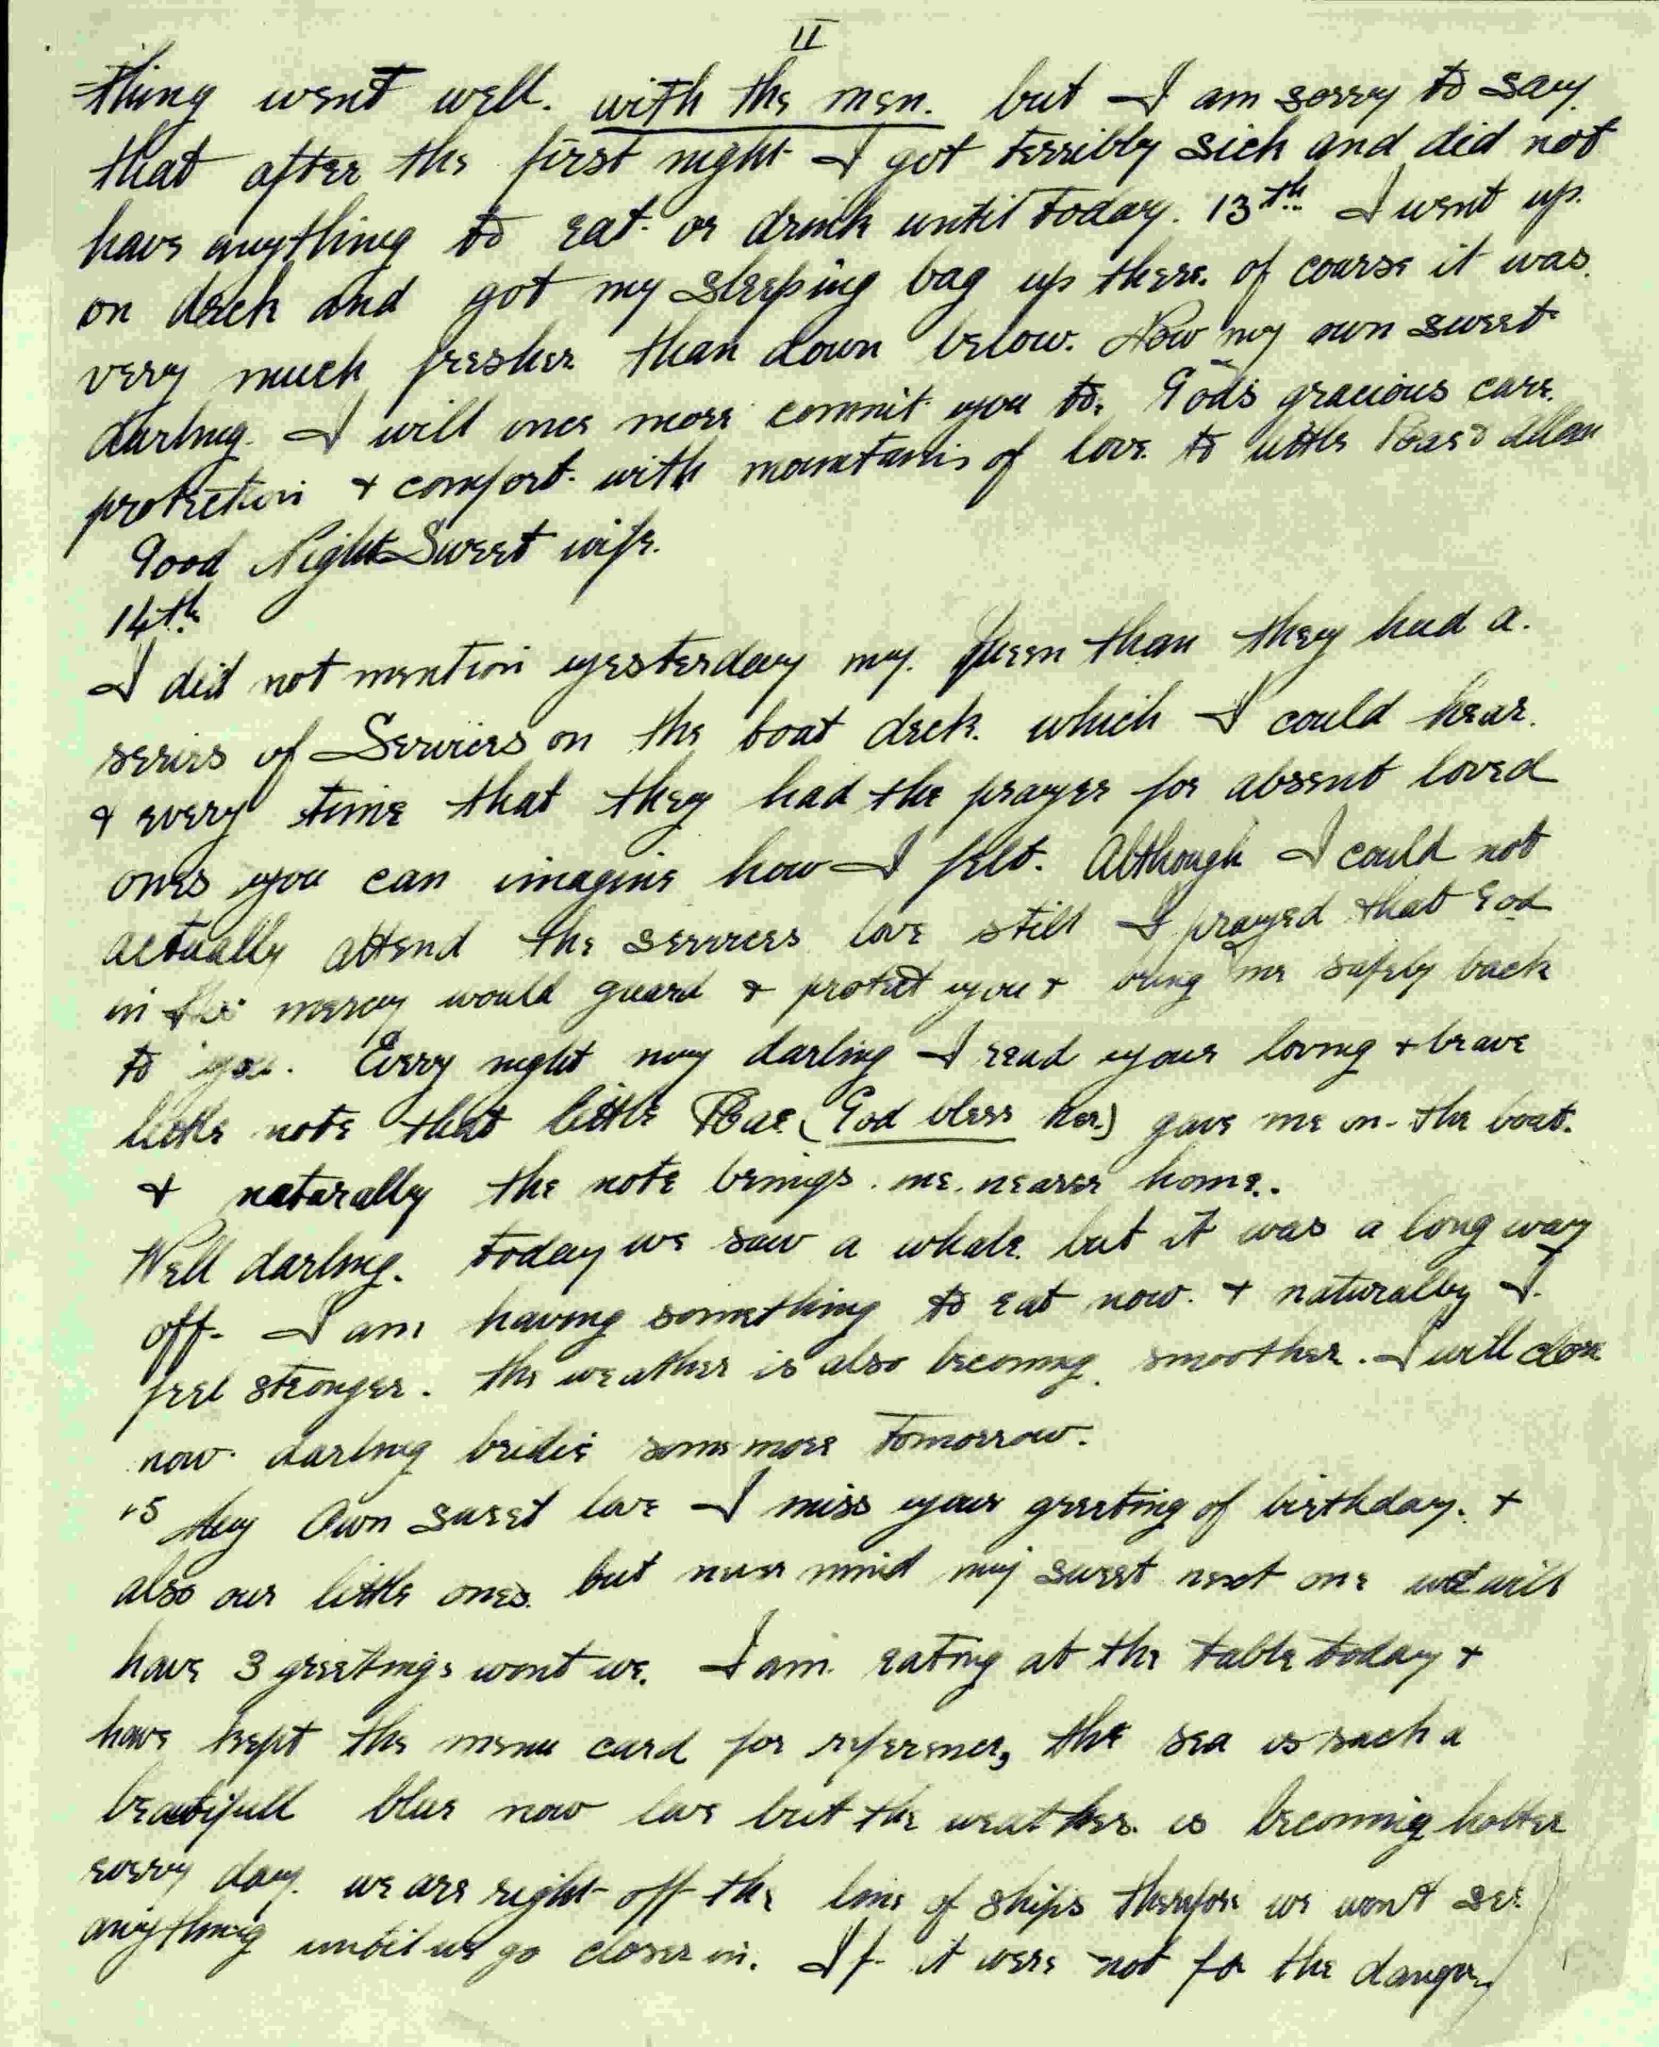 II
thing went well. with the men. but I am sorry to say
that after the first night I got terribly sick and did not
have anything to eat or drink until today. 13th. I went up
on deck and got my sleeping bag up there. of coarse it was
very much fresher than down below. Now my own sweet
darling I will once more commit you to God's gracious care
protection & comfort. with mountains of love to little
Good Night Sweet wife.
14th
I did not mention yesterday my Queen than they had a
series of Services on the boat deck. which I could hear.
& every time that they had the prayer for absent loved
ones you can imagine how I felt. Although I could not
actually attend the services love still I prayed that God
in his mercy would guard & protect you & bring me safely back
to you. Every night my darling I read your loving & brave
little note that little (God bless her) gave me on the boat.
& naturally the note brings me nearer home.
Well darling. today we saw a whale but it was a long way
off. I am having something to eat now. & naturally I
feel stronger. the weather is also becoming smoother. I will close
now darling bridie some more tomorrow.
15 My Own sweet love I miss your greeting of birthday. &
also our little ones. but never mind my sweet next one we will
have 3 greetings wont we. I am eating at the table today &
have kept the menu card for reference, the sea is such a
beautifull blue now love but the weather is becoming hotter
every day. we are right off the line of ships therefore we won't see
anything until we go closer in. If it were not for the danger